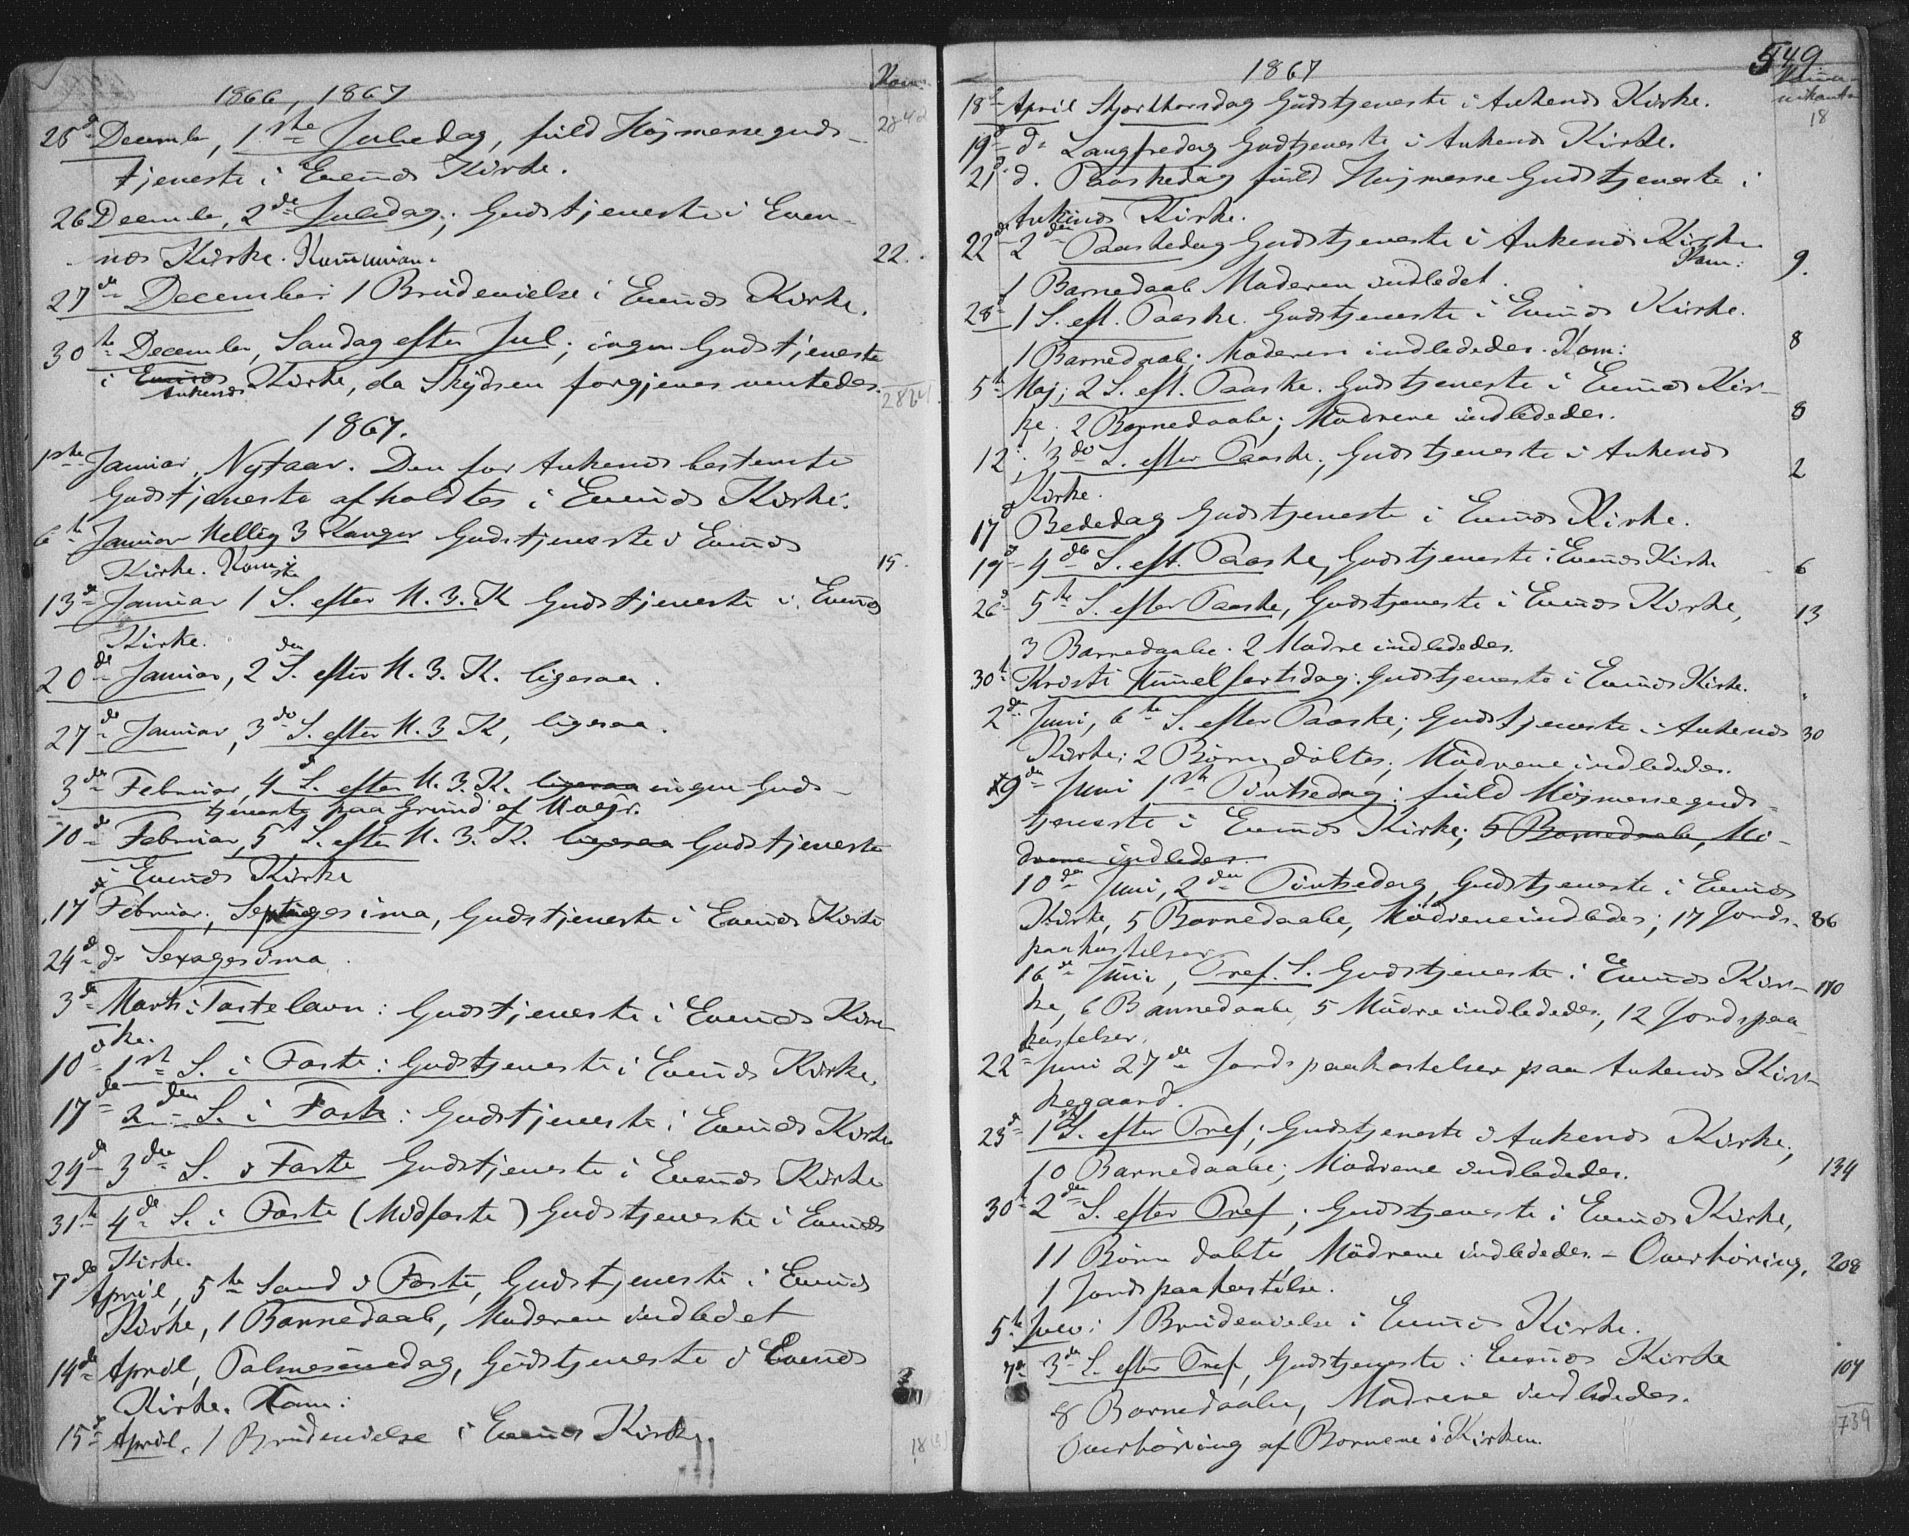 1866, 1867
Kom:
25de December, 1ste Juledag, fuld Højmesseguds-
tjeneste i Evenes Kirke.
26 Decemb., 2de Juledag; Gudstjeneste i Even-
nes Kirke. Kommunion. 22.
27de December 1 Brudevielse i Evenes Kirke.
30te December, Søndag efter Jul; ingen Gudstjeneste
i Evenes Ankenes Kirke, da Skydsen forgjeves ventedes.
1867.
1ste Januar, Nytaar. Den for Ankenes bestemte
Gudstjeneste afholdtes i Evenes Kirke.
6te Januar Hellig 3 Konger Gudstjeneste i Evenes
Kirke. Kom 15.
13de Januar 1 S. efter H. 3. K Gudstjeneste i Evenes
Kirke.
20de Januar, 2den S. efter H. 3. K. ligesaa.
27de Januar, 3de S. efter H. 3 K, ligesaa.
3de Februar, 4 S. efter H. 3. K. ligesaa ingen Guds-
tjeneste paa Grund af Uvejr.
10de Februar, 5te S. efter H. 3. K. ligesaa Gudstjeneste
i Evenes Kirke
17de Februar, Septuagesima, Gudstjeneste i Evenes Kirke
24de do Sexagesima.
3de Marts: Fastelavn: Gudstjeneste i Evenes Kir-
ke.
10de 1ste S. i Faste: Gudstjeneste i Evenes Kirke.
17de 2den S. i Faste: Gudstjeneste i Evenes Kirke
24de 3die S. i Faste Gudstjeneste i Evenes Kirke
31te 4de S. i Faste (Midfaste) Gudstjeneste i Evenes
Kirke.
7de April, 5te Sønd i Faste, Gudstjeneste i Evenes
Kirke, 1 Barnedaab, Moderen indledet
14de April, Palmesøndag, Gudstjeneste i Evenes
Kirke. Kom:
15de April. 1 Brudevielse i Evenes Kirke.
549
1867
Kommu-
nikanter
18
18de April Skjærthorsdag Gudstjeneste i Ankenes Kirke.
19de do Langfredag Gudtjeneste i Ankenes Kirke.
21de d. Paaskedag fuld Højmesse Gudstjeneste i
Ankenes Kirke.
22de 2den Paaskedag Gudstjeneste i Ankenes Kirke
Kom: 9.
1 Barnedaab Moderen indledet.
28de 1 S. eft. Paaske. Gudstjeneste i Evenes Kirke.
1 Barnedaab; Moderen indlededes. Kom: 8
5te Maj; 2 S. eft. Paaske. Gudstjeneste i Evenes Kir-
ke; 2 Barnedaabe; Mødrene indlededes. 8
12; 3die S. efter Paaske; Gudstjeneste i Ankenes
Kirke. 2
17de Bededag Gudstjeneste i Evenes Kirke.
19de 4de S. eft. Paaske, Gudstjeneste i Evenes Kirke 6
26de 5te S. efter Paaske, Gudstjeneste i Evenes Kirke, 13
3 Barnedaabe. 2 Mødre indlededes.
30te Kristi Himmelfartsdag. Gudstjeneste i Evenes Kirke.
2den Juni, 6te S. efter Paaske; Gudstjeneste i Ankenes 30
Kirke; 2 Børn døbtes; Mødrene indlededes.
9de Juni 1ste Pintsedag: fuld Højmesseguds-
tjeneste i Evenes Kirke; 5 Barnedaabe, Mø-
drene indledes.
10de Juni, 2den Pintsedag, Gudstjeneste i Evenes
Kirke, 5 Barnedaabe, Mødrene indledes; 17 Jords- 86
paakastelser
16de Juni, Tref. S. Gudstjeneste i Evenes Kir-
ke, 6 Barnedaabe, 5 Mødre indlededes, 12 Jordspaa-
kastelser. 110
22de Juni 27de Jordspaakastelser paa Ankenes Kir-
kegaard.
23de 1ste S. efter Tref; Gudstjeneste i Ankenes Kirke;
10 Barnedaabe; Mødrene indlededes. 134
30te 2den S. efter Tref; Gudstjeneste i Evenes Kirke,
11 Børn døbte, Mødrene indlededes – Overhøring, 208
1 Jordspaakastelse.
5te Juli: 1 Brudevielse i Evenes Kirke.
7de 3de S. efter Tref, Gudstjeneste i Evenes Kirke 107
8 Barnedaabe, Mødrene indlededes.
Overhøring af Børnene i Kirken.
739